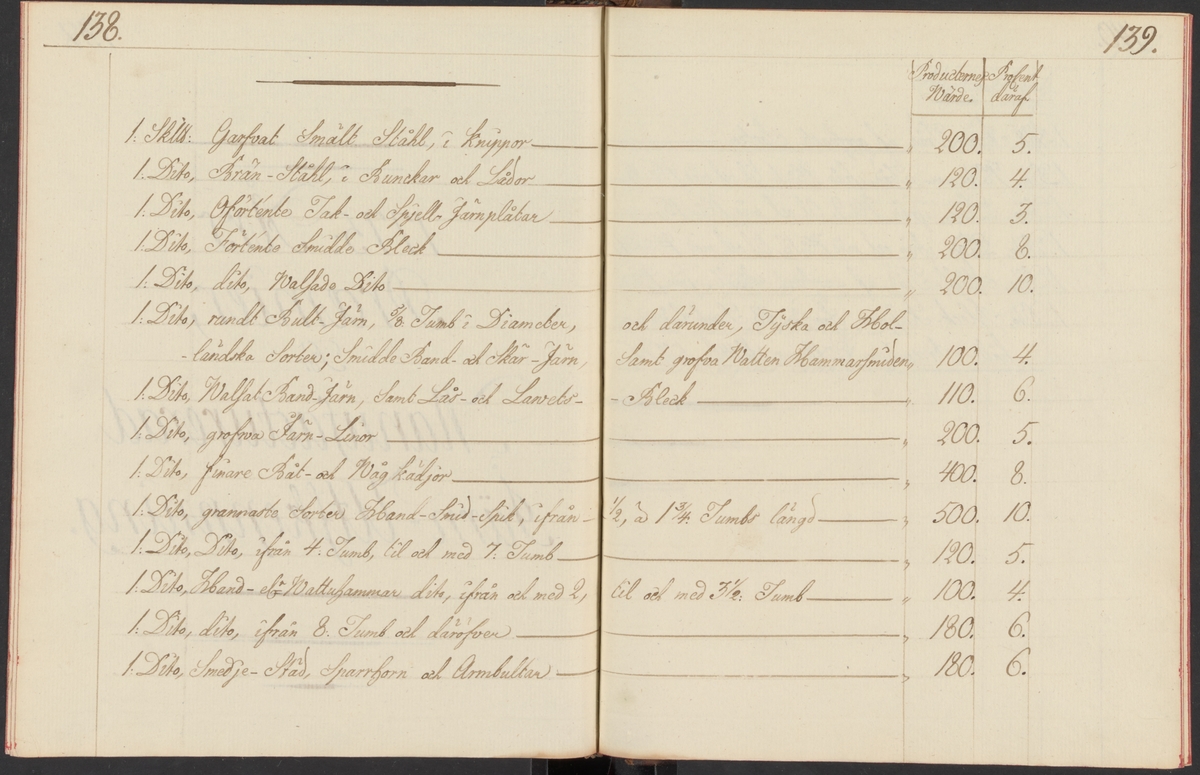 138.
139.
Producternes Wärde. Procent däraf
1: Sk℔: Garfvat Smält Stähl, i Knippor „ 200. 5.
1: Dito, Brän-Ståhl, i Bunckar och Lådor „ 120. 4.
1: Dito, Oförtente Tak- och Spjell-Järnplåtar „ 120. 3.
1: Dito, Förtente Smidde Bleck „ 200. 8.
1: Dito, dito, Walsade Dito „ 200. 10.
1: Dito, rundt Bult-Järn, 5/8 Tumb i Diameter, och därunder, Tyska och Hol-
-ländska Sorter; Smidde Band- och Skär-Järn, samt grofva Watten Hammarsmiden „ 100. 4.
1: Dito, Walsat Band-Järn, samt Lås- och Lavets- -Bleck „ 110. 6.
1: Dito, grofwa Järn-Linor „ 200. 5.
1: Dito, finare Båt- och Wåg kädjor „ 400. 8.
1: Dito, grannaste Sorter Hand-Smid-Spik, ifrån - 1/2, à 1 3/4 Tumbs längd „ 500. 10.
1: Dito, Dito, ifrån 4. Tumb, til och med 7. Tumb „ 120. 5.
1: Dito, Hand- elr Wattuhammar dito, ifrån och med 2, til och med 3 1/2: Tumb „ 100. 4.
1: Dito, dito, ifrån 8. Tumb och däröfver „ 180. 6.
1: Dito, Smedje-Städ, Sparrhorn och Armbultar „ 180. 6.